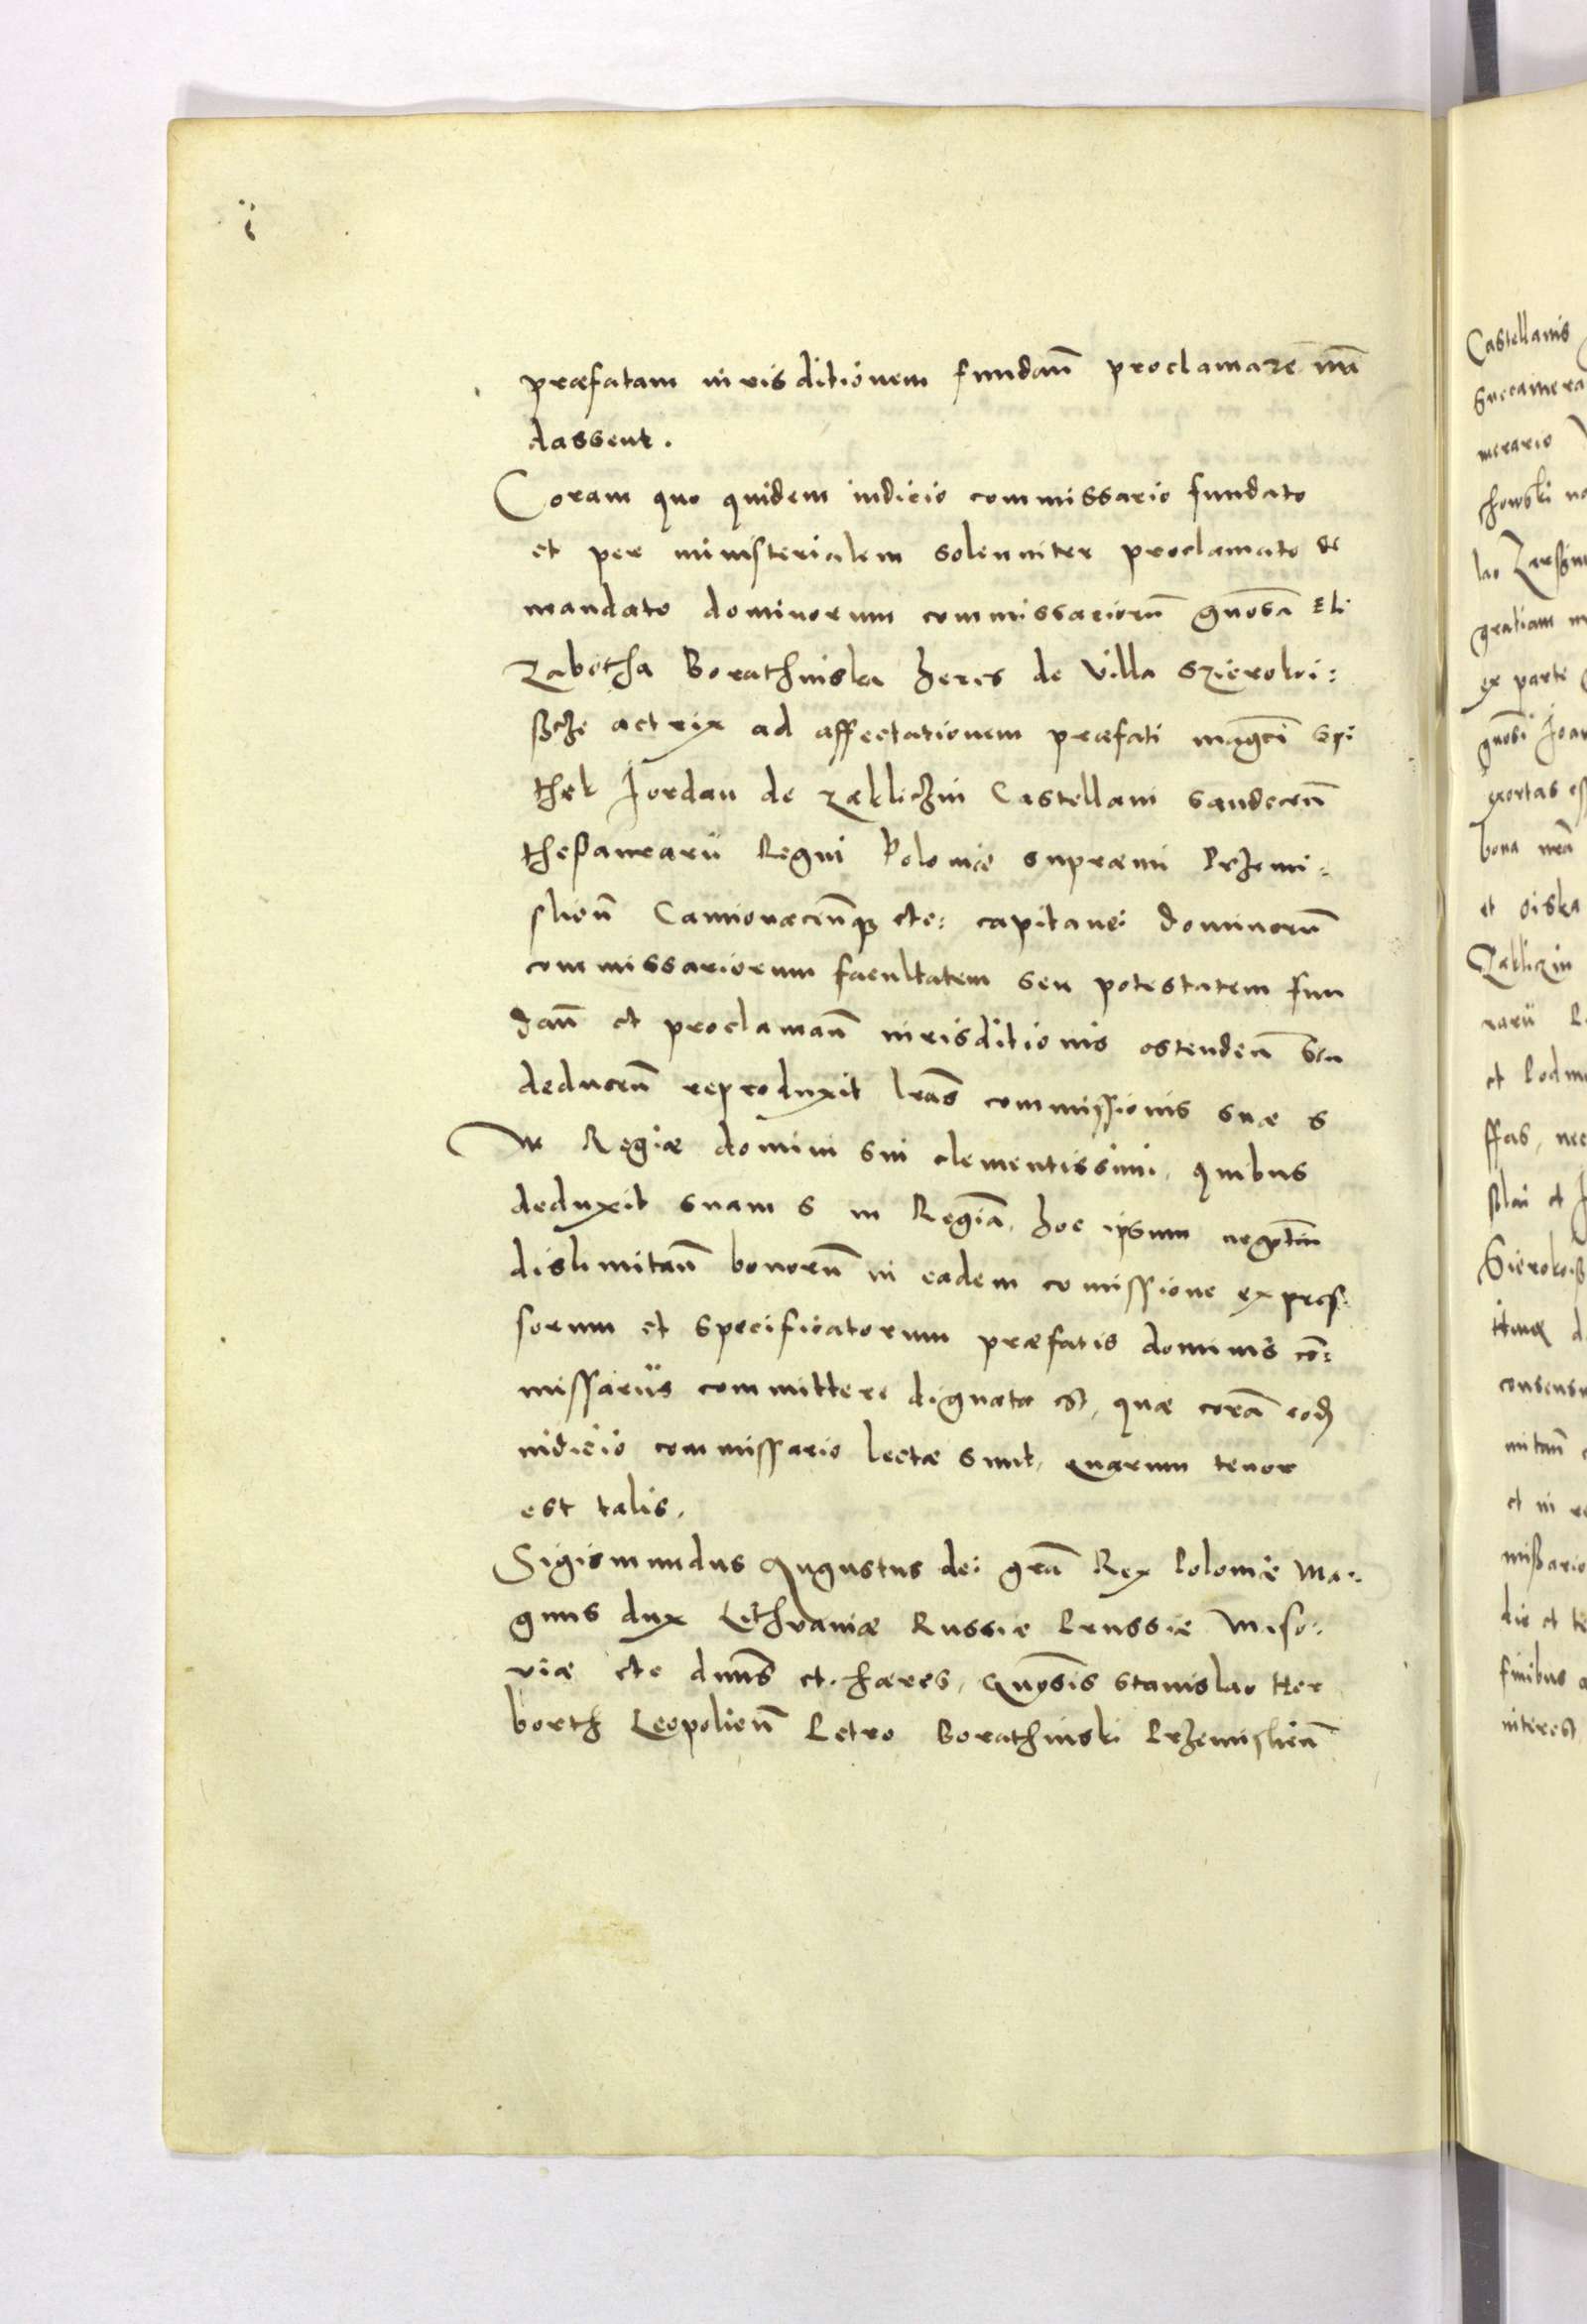 præfatam iurisditionem fundan̄ proclamare mā
dassent.
Coram quo quidem iudicio commissario fundato
et per ministerialem solenniter proclamato de
mandato dominorum commissariorū gn̄osā Eli
zabetha Borathinska heres de villa Szierokoi:
ßcze actrix ad affectationem præfati mag̅ci Spi
thek Jordan de Zakliczin Castellani Sandecen̄
thesaurarii Regni Poloniæ supræmi Przemi:
slien̄ Camionacen̄q̨ etc: capitanei dominorū
commissariorum facultatem seu potestatem fun
dan̄ et proclaman̄ iurisditionis ostenden̄ seu
deducen̄ reproduxit l̄ras commissionis suæ S
M Regiæ domini sui clementissimi, quibus
deduxit suam S M Regiā, hoc ipsum neg̅tm
dislimitan̄ bonorū in eadem comissione expres:
sorum et specificatorum præfatis dominis cō:
missariis committere dignata est, quæ corā eod̨
iudicio commissario lectæ sunt, quarum tenor
est talis.
Sigismundus Augustus dei gr̄a Rex Poloniæ Ma:
gnus dux Lithvaniæ Russiæ Prussiæ Maso:
viæ etc dn̄us et hæres, Gn̄osis Stanislao Her
borth Leopolien̄ Petro Borathinski Przemislien̄
Castellanis
Succamera
merario
chowski
gratiam
ex parte
gn̄osi Joan
exortas
bona
et
Zakliczin
rarii
et
nec
et
Sierokoiß
consensu
mitan̄
et in
mißario
die et
finibus
interest